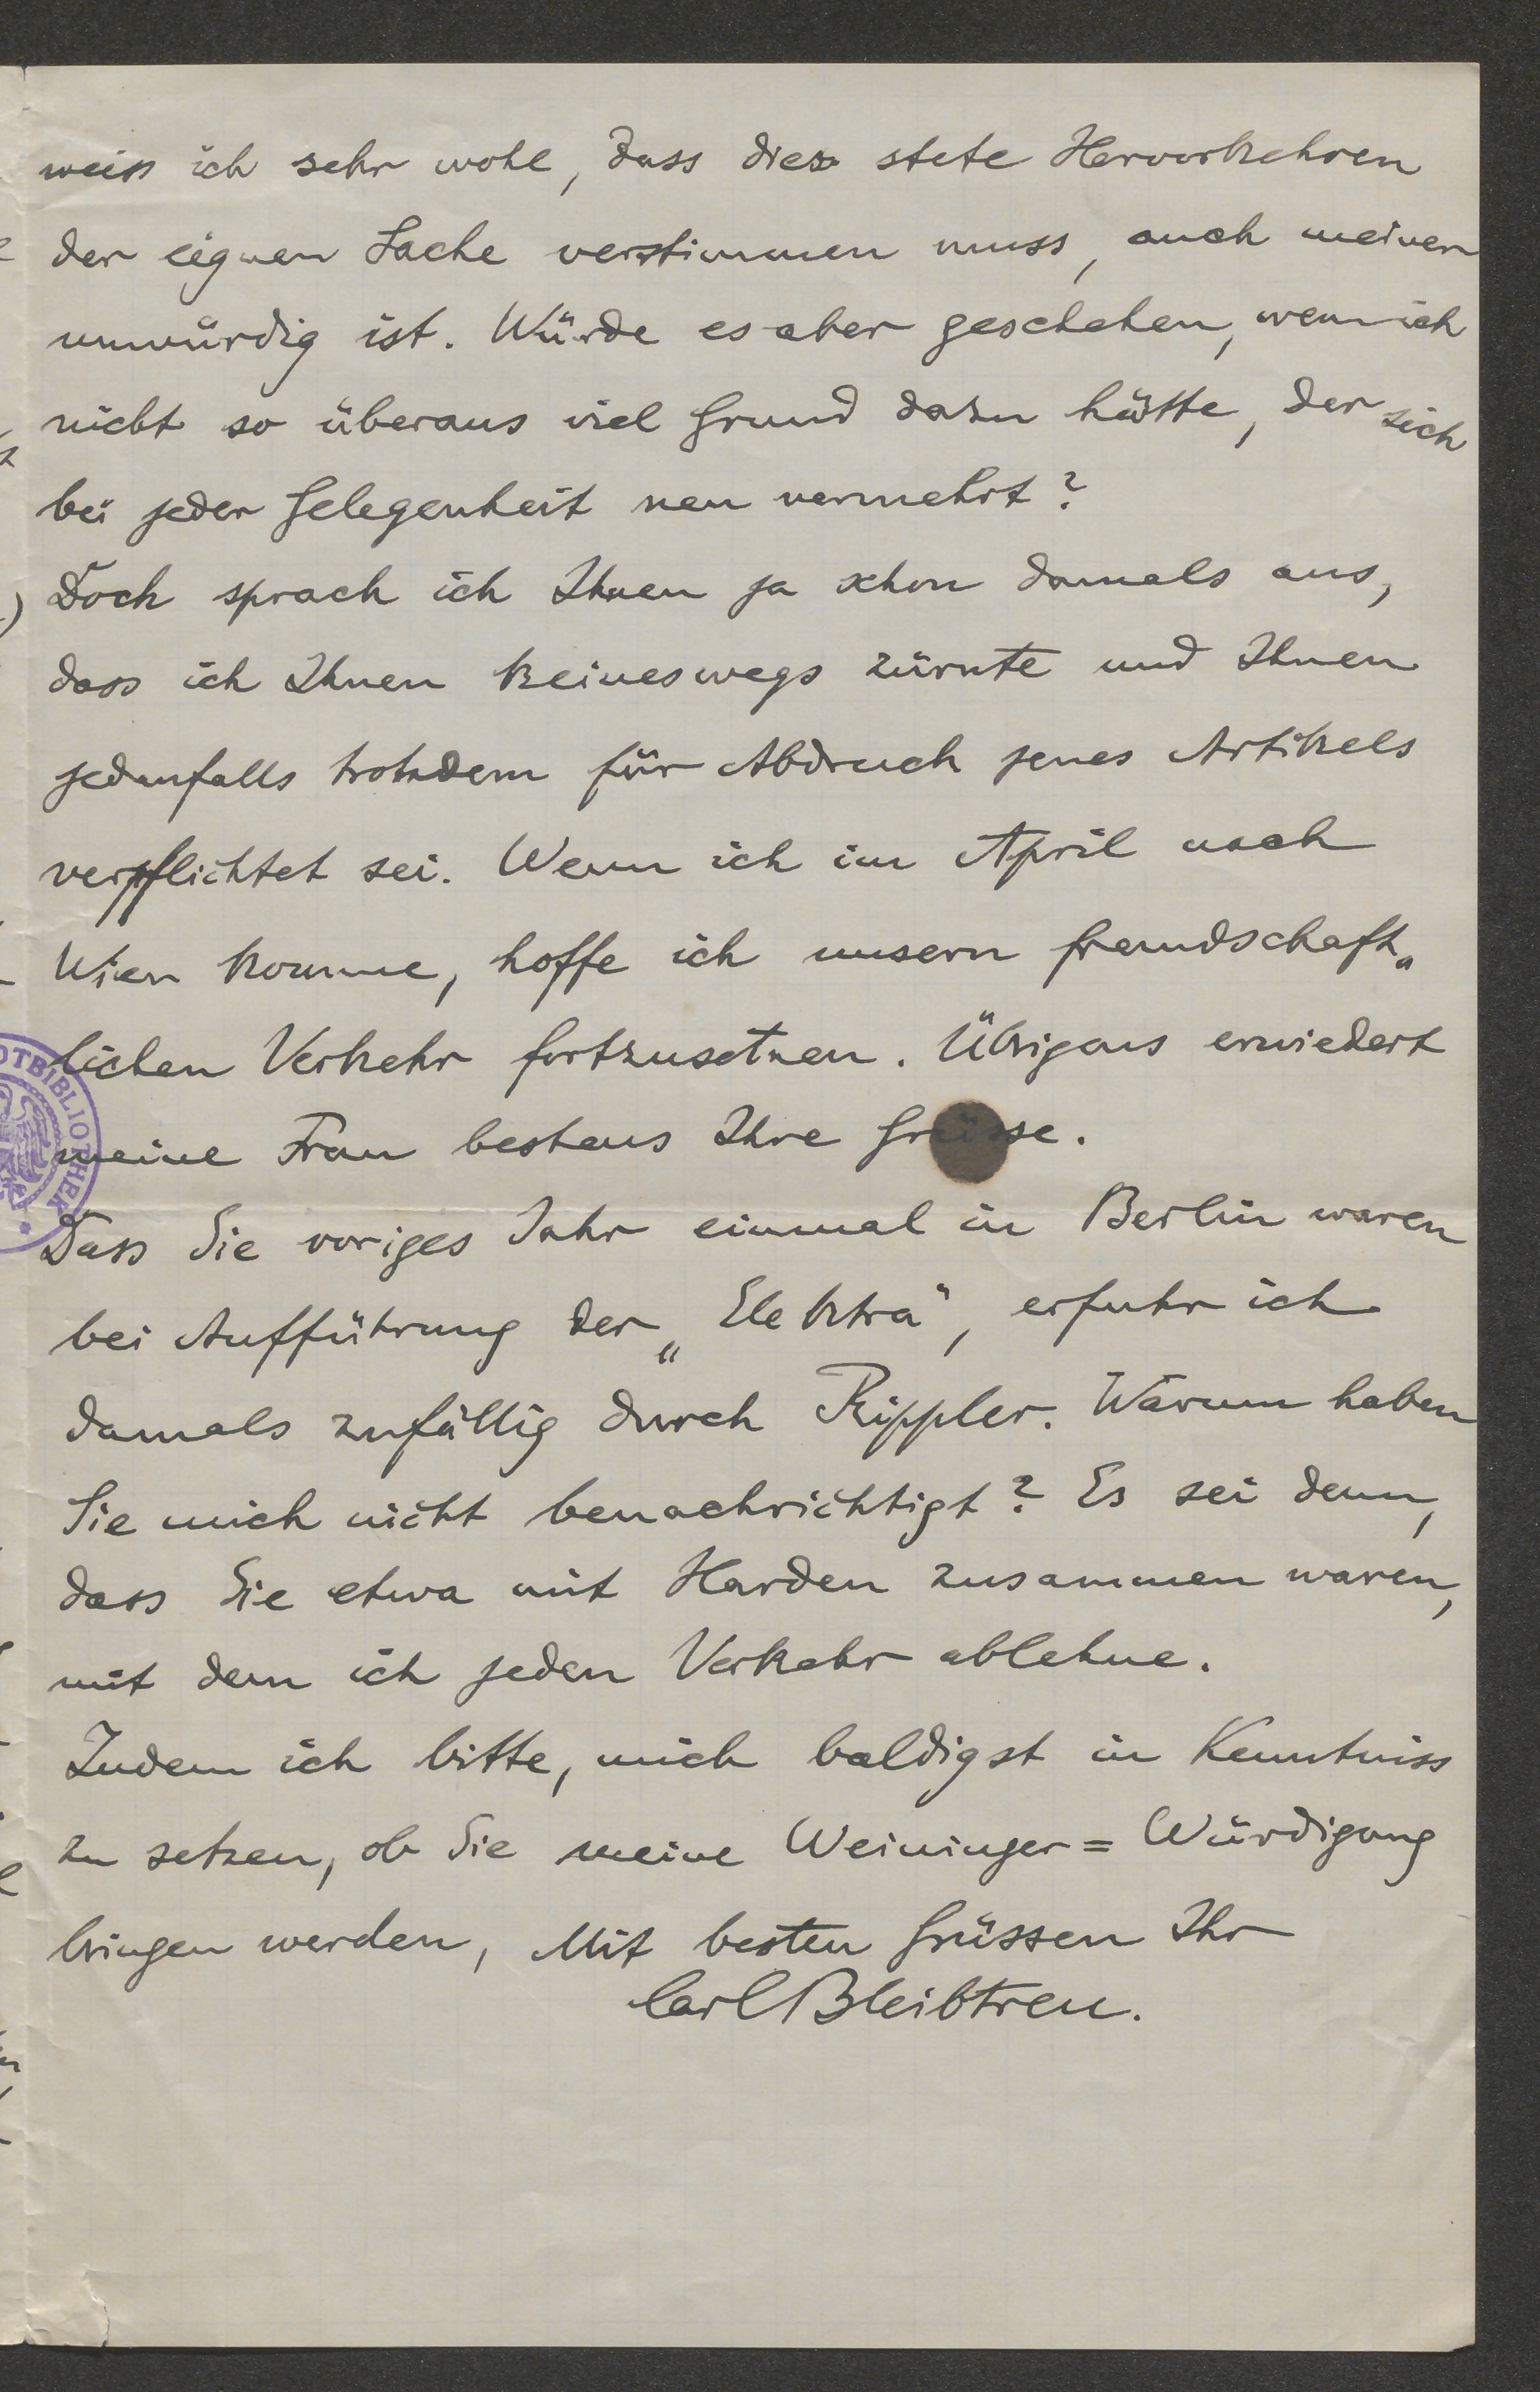 weiss ich sehr wohl, dass dies stete Hervorkehren
der eignen Sache verstimmen muss, auch meiner
unwürdig ist. Würde es aber geschehen, wenn ich
nicht so überaus viel Grund dazu hätte, der sich
bei jeder Gelegenheit neu vermehrt?
Doch sprach ich Ihnen ja schon damals aus,
dass ich Ihnen keineswegs zürnte und Ihnen
jedenfalls trotzdem für Abdruck jenes Artikels
verpflichtet sei. Wenn ich im April nach
Wien komme, hoffe ich unsern freundschaft„
lichen Verkehr fortzusetzen. Übrigens erwiedert
meine Frau bestens Ihre Grüsse.
Dass Sie voriges Jahr einmal in Berlin waren
bei Aufführung der „Elektra", erfuhr ich
damals zufällig durch Rippler. Warum haben
Sie mich nicht benachrichtigt? Es sei denn,
dass Sie etwa mit Harden zusammen waren,
mit dem ich jeden Verkehr ablehne.
Indem ich bitte, mich baldigst in Kenntniss
zu setzen, ob Sie meine Weininger=Würdigung
bringen werden, Mit besten Grüssen Ihr
Carl Bleibtreu.
OTBIBLIOTHEK